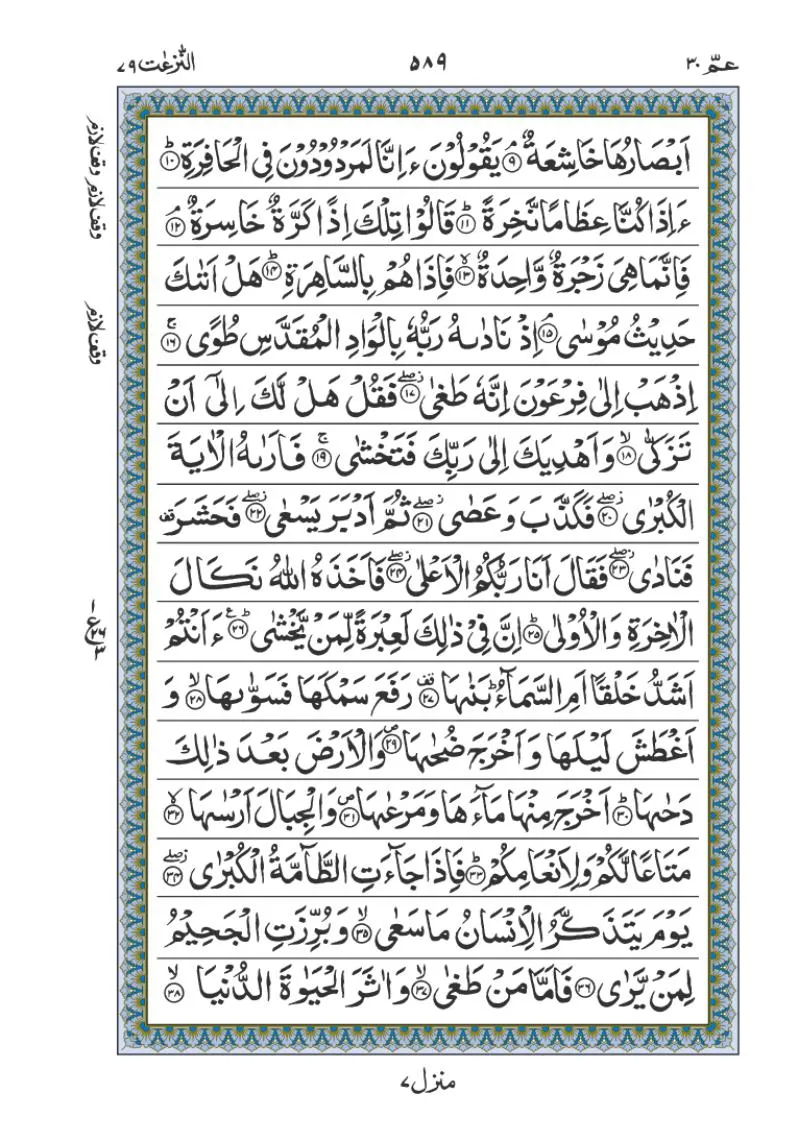 عمّ ۳۰
۵۸۹
النّٰزعٰت ۷۹
اَبۡصَارُهَا خَاشِعَةٌ ۘ﴿۹﴾ يَقُوۡلُوۡنَ ءَاِنَّا لَمَرۡدُوۡدُوۡنَ فِى الۡحَافِرَةِ ؕ﴿۱۰﴾
ءَاِذَا كُنَّا عِظَامًا نَّخِرَةً ؕ﴿۱۱﴾ قَالُوۡا تِلۡكَ اِذًا كَرَّةٌ خَاسِرَةٌ ۘ﴿۱۲﴾
فَاِنَّمَا هِىَ زَجۡرَةٌ وَّاحِدَةٌ ۙ﴿۱۳﴾ فَاِذَا هُمۡ بِالسَّاهِرَةِ ؕ﴿۱۴﴾ هَلۡ اَتٰٮكَ
حَدِيۡثُ مُوۡسٰى ۘ﴿۱۵﴾ اِذۡ نَادٰٮهُ رَبُّهٗ بِالۡوَادِ الۡمُقَدَّسِ طُوًى ۚ﴿۱۶﴾
اِذۡهَبۡ اِلٰى فِرۡعَوۡنَ اِنَّهٗ طَغٰى ۖ﴿۱۷﴾ فَقُلۡ هَلۡ لَّكَ اِلٰٓى اَنۡ
تَزَكّٰى ۙ﴿۱۸﴾ وَاَهۡدِيَكَ اِلٰى رَبِّكَ فَتَخۡشٰى ۚ﴿۱۹﴾ فَاَرٰٮهُ الۡاٰيَةَ
الۡكُبۡرٰى ۖ﴿۲۰﴾ فَكَذَّبَ وَعَصٰى ۖ﴿۲۱﴾ ثُمَّ اَدۡبَرَ يَسۡعٰى ۖ﴿۲۲﴾ فَحَشَرَ قف
فَنَادٰى ۖ﴿۲۳﴾ فَقَالَ اَنَا رَبُّكُمُ الۡاَعۡلٰى ۖ﴿۲۴﴾ فَاَخَذَهُ اللّٰهُ نَكَالَ
الۡاٰخِرَةِ وَالۡاُوۡلٰى ؕ﴿۲۵﴾ اِنَّ فِىۡ ذٰلِكَ لَعِبۡرَةً لِّمَنۡ يَّخۡشٰى ؕع﴿۲۶﴾ ءَاَنۡتُمۡ
اَشَدُّ خَلۡقًا اَمِ السَّمَآءُ ؕ بَنٰٮهَا قف﴿۲۷﴾ رَفَعَ سَمۡكَهَا فَسَوّٰٮهَا ۙ﴿۲۸﴾ وَ
اَغۡطَشَ لَيۡلَهَا وَاَخۡرَجَ ضُحٰٮهَا ص﴿۲۹﴾ وَالۡاَرۡضَ بَعۡدَ ذٰلِكَ
دَحٰٮهَا ؕ﴿۳۰﴾ اَخۡرَجَ مِنۡهَا مَآءَهَا وَمَرۡعٰٮهَا ص﴿۳۱﴾ وَالۡجِبَالَ اَرۡسٰٮهَا ۙ﴿۳۲﴾
مَتَاعًا لَّكُمۡ وَلِاَنۡعَامِكُمۡ ؕ﴿۳۳﴾ فَاِذَا جَآءَتِ الطَّآمَّةُ الۡكُبۡرٰى ۖ﴿۳۴﴾
يَوۡمَ يَتَذَكَّرُ الۡاِنۡسَانُ مَا سَعٰى ۙ﴿۳۵﴾ وَبُرِّزَتِ الۡجَحِيۡمُ
لِمَنۡ يَّرٰى ﴿۳۶﴾ فَاَمَّا مَنۡ طَغٰى ۙ﴿۳۷﴾ وَاٰثَرَ الۡحَيٰوةَ الدُّنۡيَا ۙ﴿۳۸﴾
وقف لازم وقف لازم
وقف لازم
منزل ۷